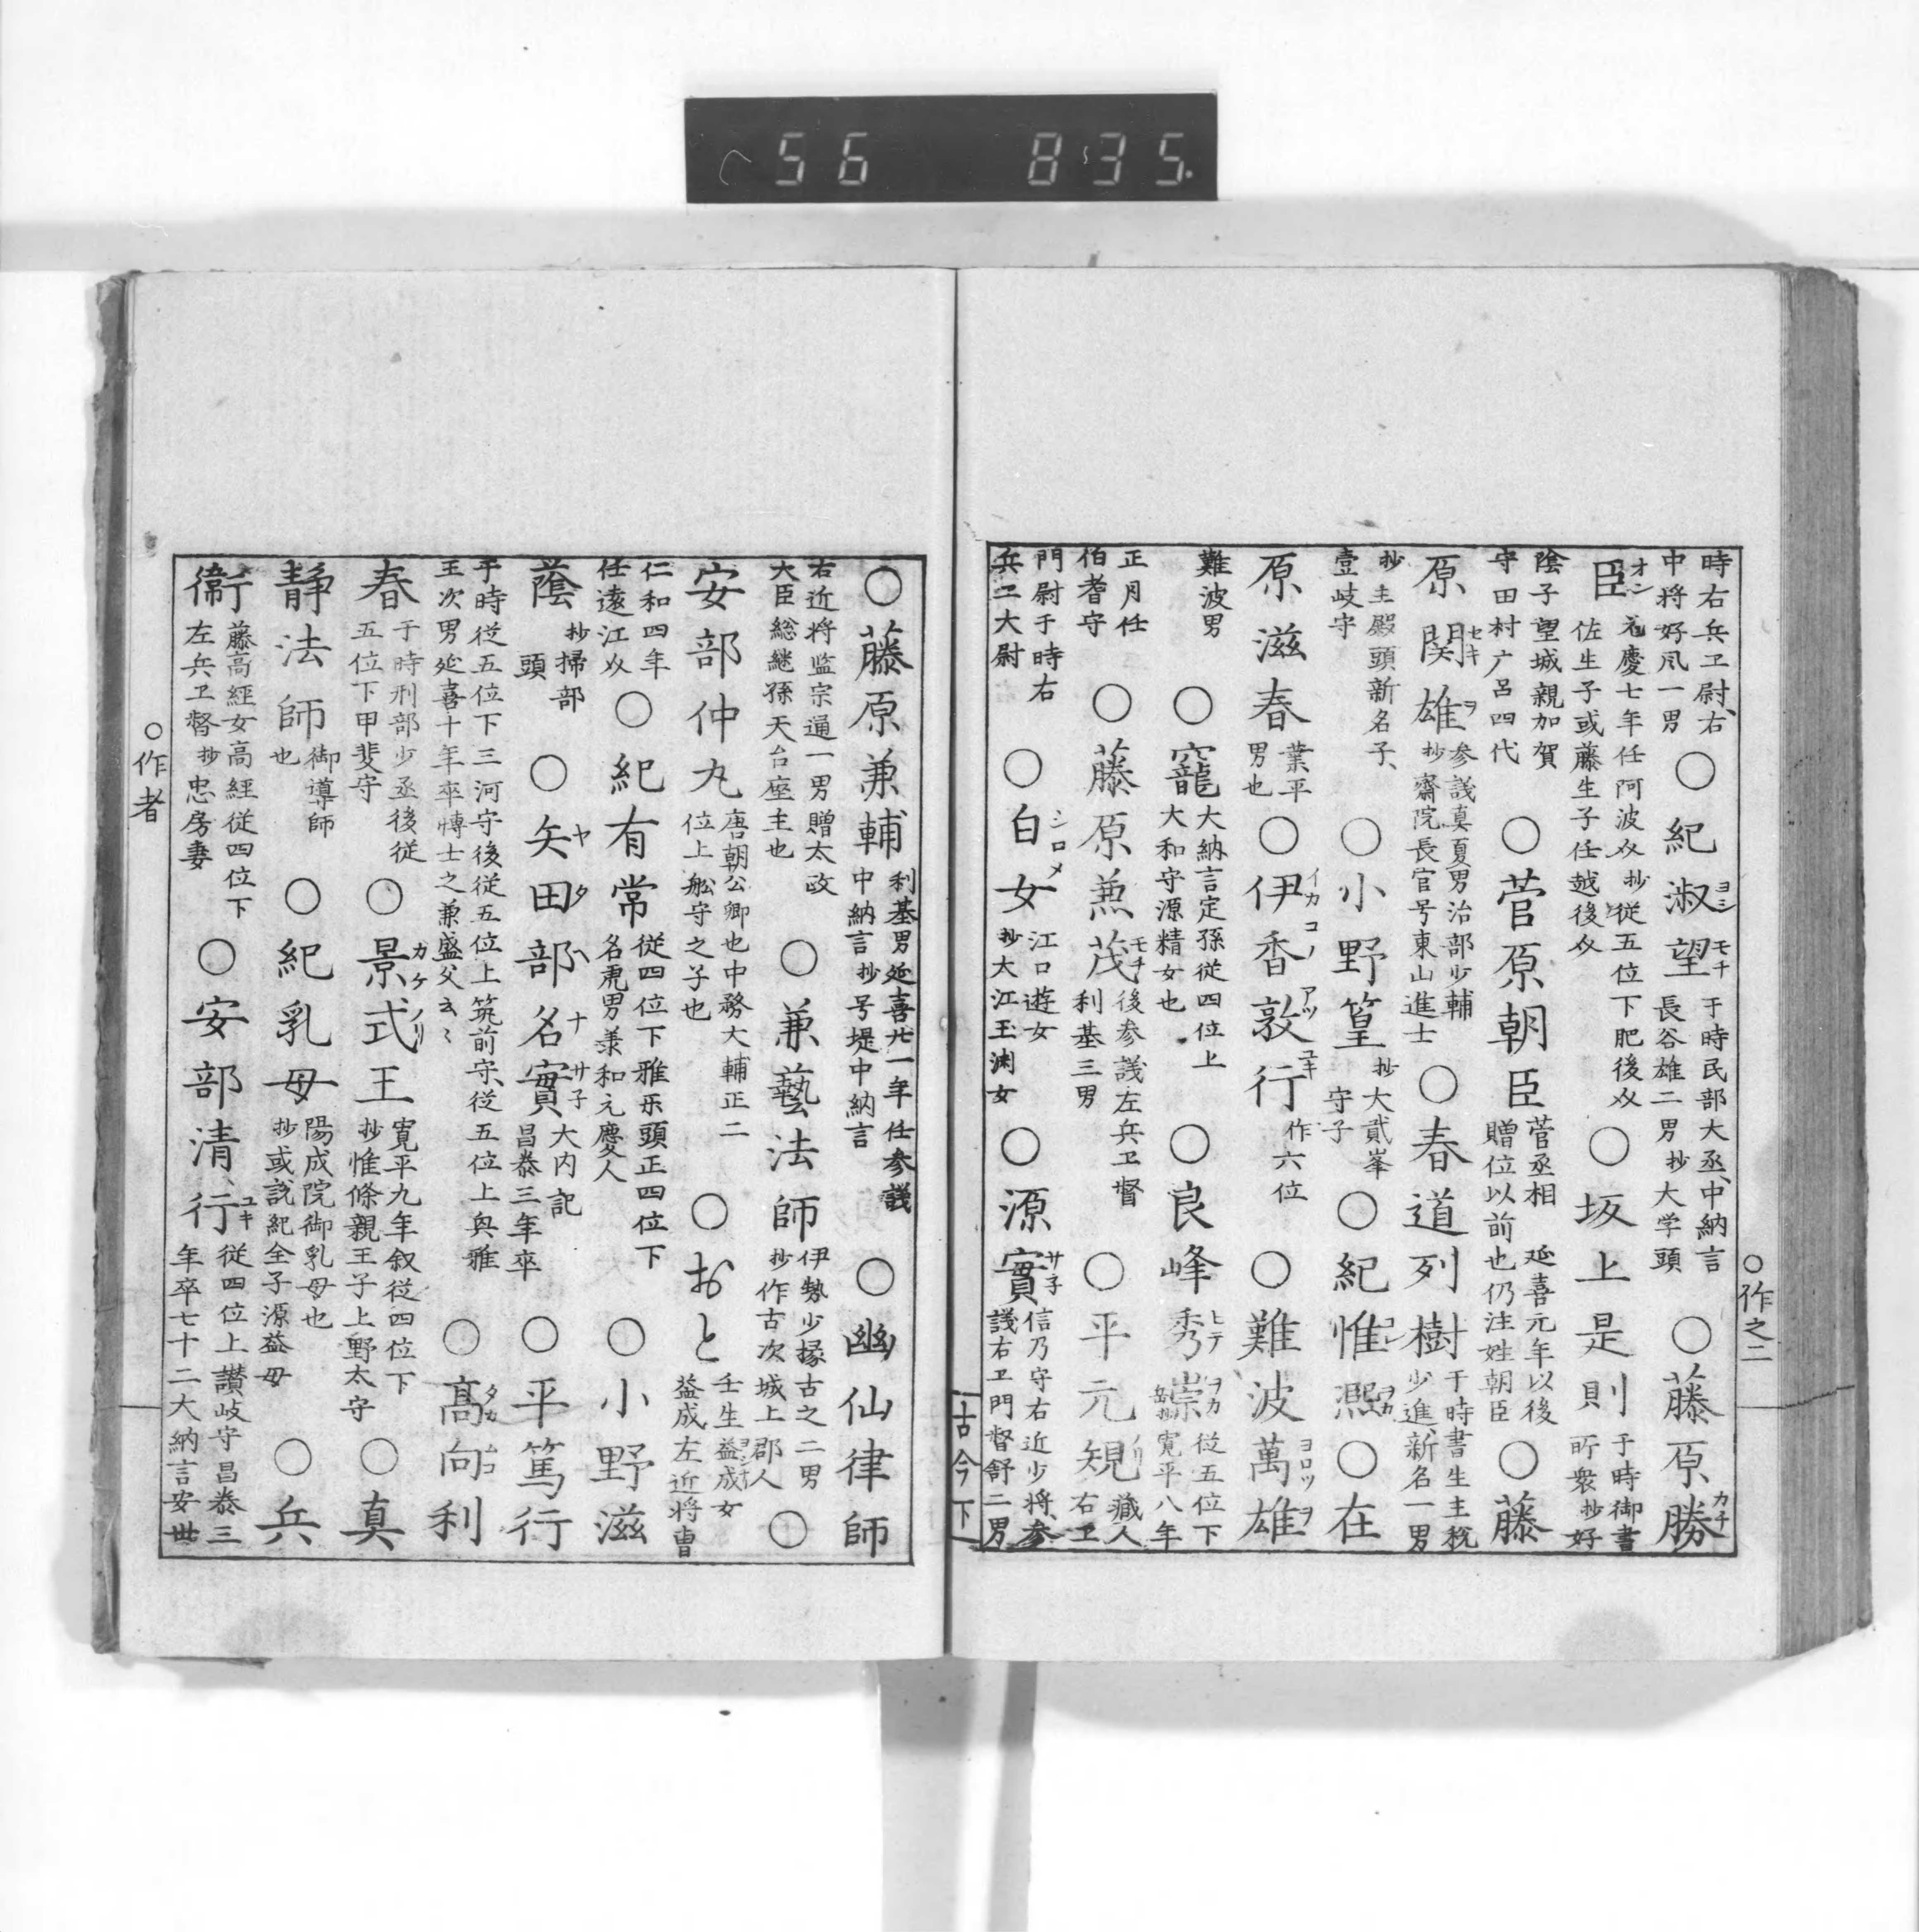 56 835
○作之二
時右兵卫尉、右
中将好凨一男
○紀淑望
ヨシ モチ
于時民部大丞、中納言
長谷雄二男抄大学頭
○藤原勝
カチ
臣
オン
元慶七年任阿波
佐生子或藤生子任越後
抄従五位下肥後
○坂上是則
于時御書
所衆抄好
陰子望城親加賀
守田村广呂四代
○菅原朝臣
菅丞相
贈位以前也仍注姓朝臣
延喜元年以後
○藤
原関雄
セキ ヲ
参議真夏男治部少輔
抄齋院長官号東山進士
○春道列樹
于時書生主税
少進、新名一男
抄主殿頭新名子、
壹岐守
○小野篁
抄大貳峯
守子
○紀惟熙
○在
原滋春
業平
男也
○伊香敦行
イカ コノ アツ ユキ
作六位
○難波萬雄
ヨロツ ヲ
難波男
○寵
大納言定孫従四位上
大和守源精女也
○良峰秀崇
ヒテ ヲカ
従五位下
寛平八年
正月任
伯耆守
○藤原兼茂
モチ
後参議左兵卫督
利基三男
○平元規
ノリ
藏人
右卫
門尉于時右
兵卫大尉
○白女
シロメ
江口遊女
抄大江玉渕女
○源實
サ子
信乃守右近少将、参
議右卫門督舒二男
古今下
○藤原兼輔
利基男延喜廿一年任参議
中納言抄号堤中納言
○幽仙律師
右近将监宗通一男贈太政
大臣総継孫天台座主也
○兼藝法師
伊勢少掾古之二男
抄作古次城上郡人
○
安部仲丸
唐朝公卿也中務大輔正二
位上舩守之子也
○おと
壬生益成女
益成左近将曹
仁和四年
任遠江
○紀有常
従四位下雅乐頭正四位下
名虎男兼和元慶人
○小野滋
蔭
抄掃部
頭
○矢田部名實
ヤタ ナ サ子
大内記
昌泰三年卒
○平篤行
于時従五位下三河守後従五位上筑前守、従五位上與雅
王次男延喜十年卒博士之兼盛父云〻
○高向利
タカ ムコ
春
于時刑部少丞後従
五位下甲斐守
○景式王
カケ ノリ
寛平九年叙従四位下
抄惟條親王子上野太守
○真
静法師
御導師
也
○紀乳母
陽成院御乳母也
抄或説紀全子源益母
○兵
衛
藤高経女高経従四位下
左兵卫督抄忠房妻
○安部清行
ユキ
従四位上讃岐守昌泰三
年卒七十二大納言安世
○作者